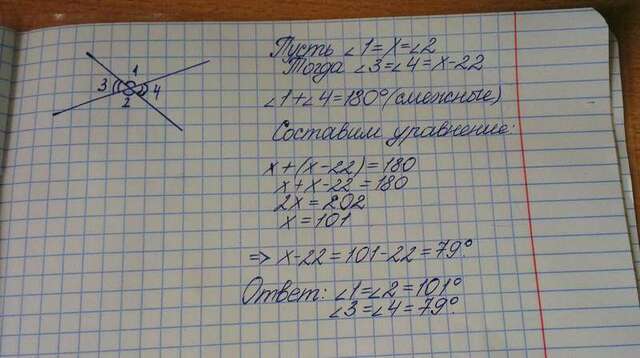 Пусть ∠1=x=∠2
Тогда ∠3=∠4=x-22
1
3 4
2
∠1+∠4=180°(смежные)
Составим уравнение:
x+(x-22)=180
x+x-22=180
2x=202
x=101
=> x-22=101-22=79°.
Ответ: ∠1=∠2=101°
∠3=∠4=79°.